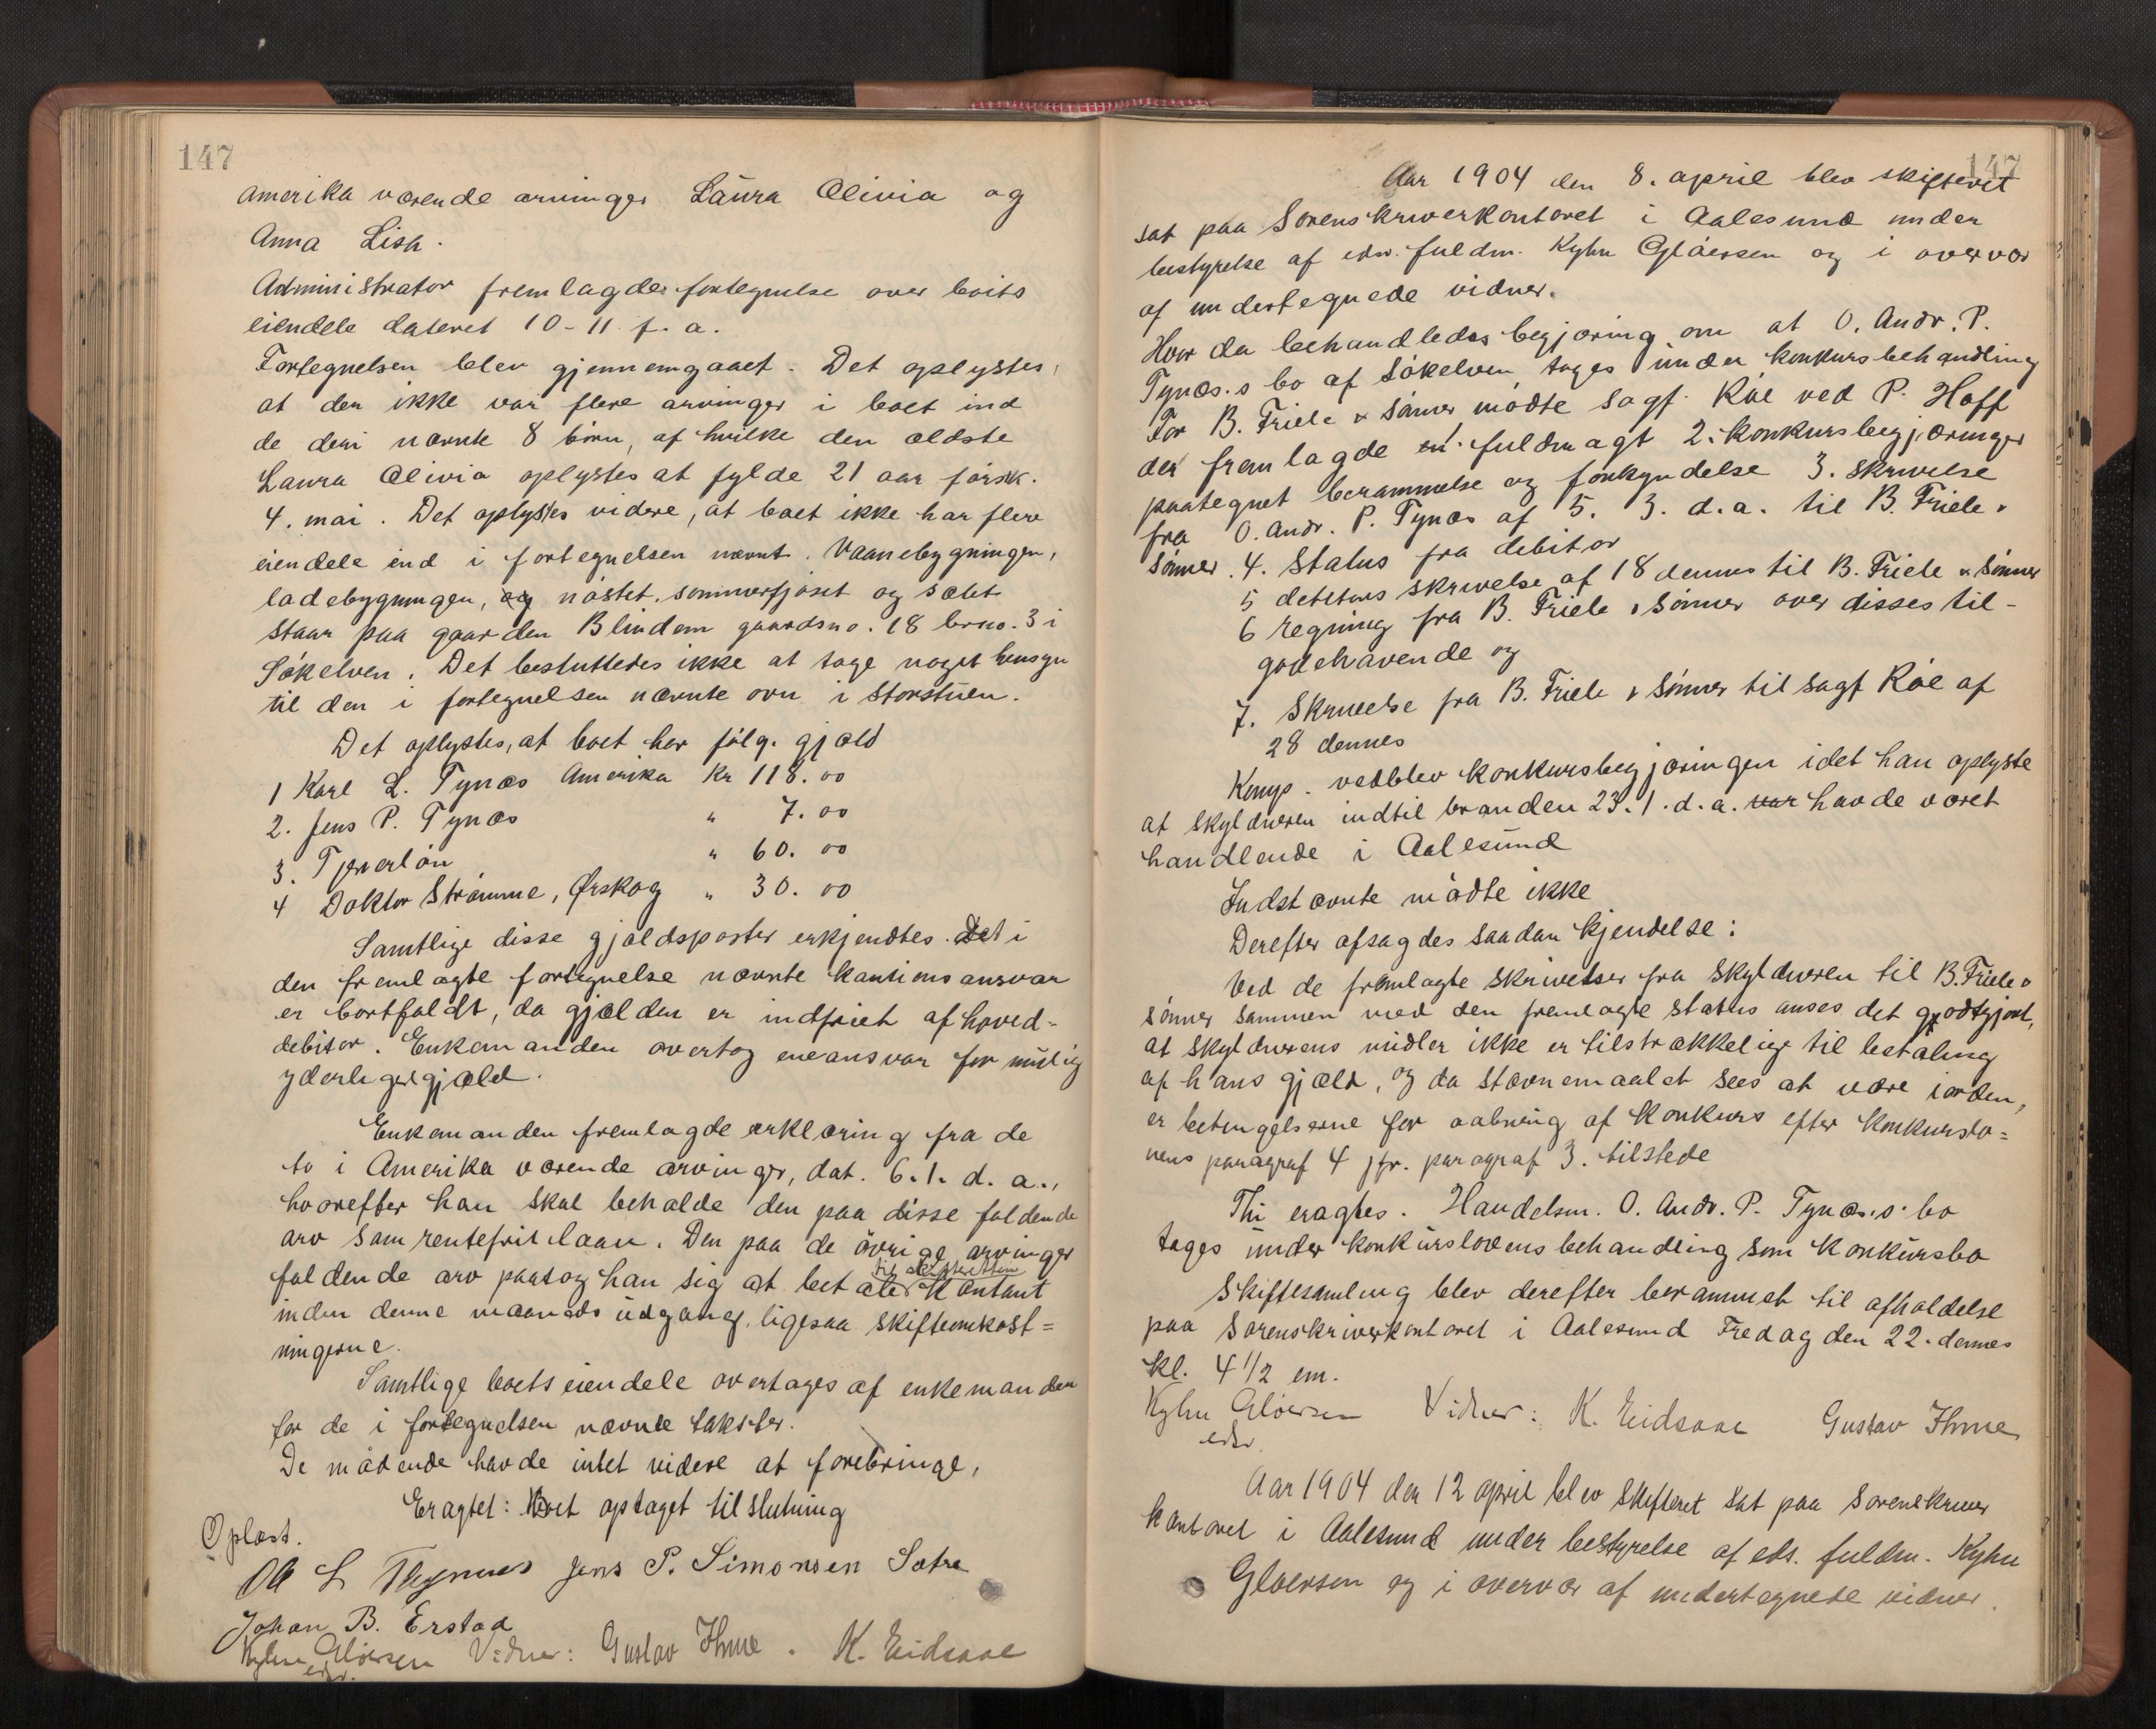 147
Amerika værende arvinger Laura Olivia og
Anna Lish.
Administrator fremlagde fortegnelse over boits
eiendele dateret 10-11 f. a.
Fortegnelsen blev gjennemgaaet. Det oplystes,
at der ikke var flere arvinger i boet ind
de deri nævnte 8 børn, af hvilke den ældste
Laura Olivia oplystes at fylde 21 aar førstk.
4. mai. Det oplystes videre, at boet ikke har flere
eiendele end i fortegnelsen nævnt. Vaanebygningen,
ladebygningen, og nøstet, sommerfjøset og sælet
staar paa gaarden Blindem gaardsno. 18 brno. 3 i
Søkelven. Det besluttedes ikke at tage noget hensyn
til den i fortegnelsen nævnte ovn i Storstuen.
Det oplystes, at boet har følg. gjæld
1 Karl L. Tynæs Amerika Kr 118.00
2. Jens P. Tynæs " 7.00
3. Tjenerløn " 60.00
4 Doktor Strømme, Ørskog " 30.00
Samtlige disse gjældsposter erkjendtes. Det i
den fremlagte fortegnelse nævnte kautionsansvar
er bortfaldt, da gjælden er indfriet af hoved=
debitor. Enkemanden overtog eneansvar for mulig
yderligere gjæld.
Enkemanden fremlagde erklæring fra de
to i Amerika værende arvinger, dat. 6.1. d. a.,
hvorefter han skal beholde den paa disse faldende
arv som rentefrit laan. Den paa de øvrige arvinger
til skifteretten
faldende arv paatog han sig at betale kontant
inden denne maaneds udgang, ligesaa skifteomkost=
ningerne.
Samtlige boets eiendele overtages af enkemanden
for de i fortegnelsen nævnte takster.
De mødende havde intet videre at forebringe,
Eragtet: Boet optaget til slutning
Oplæst.
Ole L Thynnes Jens P. Simonsen Sætre
Johan B. Erstad
Kyhn Gløersen Vidner: Gustav Ihme. K. Eidsaae
edsv.
147
Aar 1904 den 8. april blev skifteret
sat paa Sorenskriverkontoret i Aalesund under
bestyrelse af edsv. fuldm. Kyhn Gløersen og i overvær
af undertegnede vidner.
Hvor da behandledes begjæring om at O. Andr. P.
Tynæs.s bo af Søkelven tages under konkursbehandling
For B. Friele & sønner mødte sagf. Røe ved P. Hoff
der fremlagde 1. fuldmagt 2. konkursbegjæringer
paategnet berammelse og forkyndelse 3. skrivelse
fra O. Andr. P. Tynæs af 5. 3. d.a. til B. Friele &
Sønner. 4. Status fra debitor
5 debitors skrivelse af 18 dennes til B. Friele & Sønner
6 regning fra B. Friele & Sønner over disses til-
godehavende og
7. Skrivelse fra B. Friele & Sønner til sagf Røe af
28 dennes
Komp. vedblev konkursbegjæringen idet han oplyste
at skyldneren indtil branden 23.1.d.a. var havde været
handlende i Aalesund
Indstævnte mødte ikke
Derefter afsagdes saadan kjendelse:
Ved de fremlagte skrivelser fra skyldneren til B. Friele &
sønner sammen med den fremlagte status anses det godtgjort,
at skyldnerens midler ikke er tilstrækkelige til betaling
af hans gjæld, og da stævnemaalet sees at være iorden,
er betingelserne for aabning af konkurs efter konkurslo=
vens paragraf 4 jfr. paragraf 3. tilstede
Thi eragtes. Handelsm. O. Andr. P. Tynæs.s bo
tages under konkurslovens behandling som konkursbo
Skiftesamling blev derefter berammet til afholdelse
paa sorenskriverkontoret i Aalesund Fredag den 22. dennes
kl. 4 1/2 em.
Kyhn Gløersen Vidner: K. Eidsaae Gustav Ihme
edsv.
Aar 1904 den 12 april blev skifteret sat paa sorenskriver
kontoret i Aalesund under bestyrelse af eds. fuldm. Kyhn
Gløersen og i overvær af undertegnede vidner.